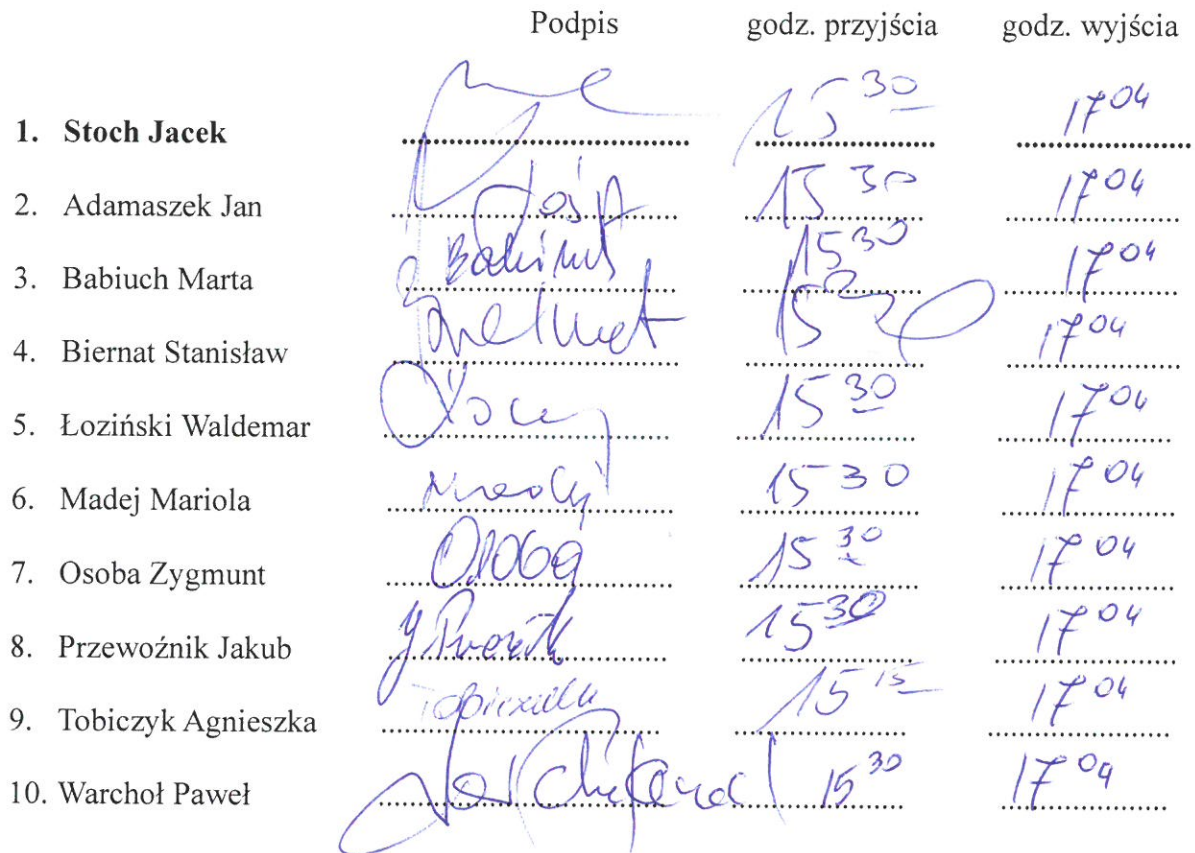 Podpis godz. przyjścia godz. wyjścia
1. Stoch Jacek 15 30 17 04
2. Adamaszek Jan 15 30 17 04
3. Babiuch Marta 15 30 17 04
4. Biernat Stanisław 15 30 17 04
5. Łoziński Waldemar 15 30 17 04
6. Madej Mariola Madej 15 30 17 04
7. Osoba Zygmunt Osoba 15 30 17 04
8. Przewoźnik Jakub 15 30 17 04
9. Tobiczyk Agnieszka 15 15 17 04
10. Warchoł Paweł 15 30 17 04